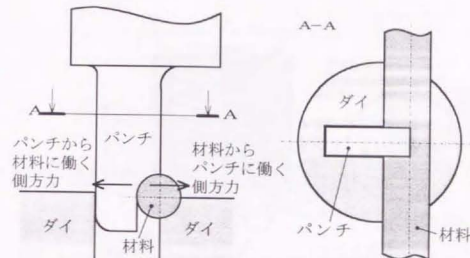 A-A
A
A
パンチ
パンチから
材料に働く
側方力
材料から
パンチに働く
側方力
ダイ
ダイ
材料
ダイ
パンチ
材料